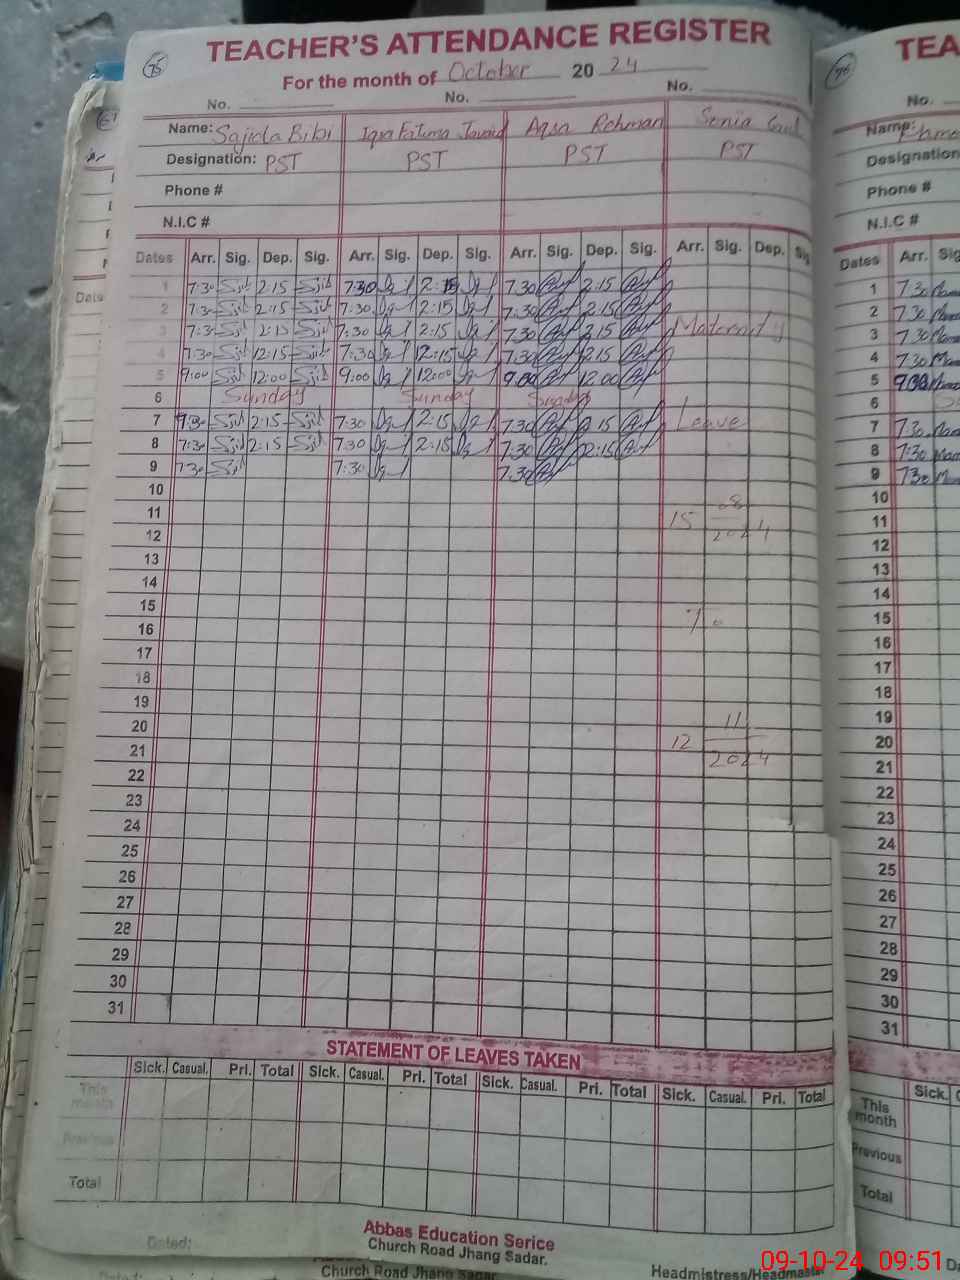 75
TEACHER'S ATTENDANCE REGISTER
For the month of October 20 24
No. No. No.
Name: Sajida Bibi Iqra Fatima Javaid Aqsa Rehman Sonia
Designation: PST PST PST PST
Phone #
N.I.C #
Dates Arr. Sig. Dep. Sig. Arr. Sig. Dep. Sig. Arr. Sig. Dep. Sig. Arr. Sig. Dep. Sig
1 7:30 2:15 7:30 2:15 7:30 2:15
2 7:30 2:15 7:30 2:15 7:30 2:15
3 7:30 2:15 7:30 2:15 7:30 2:15 Maternity
4 7:30 12:15 7:30 12:15 7:30 2:15
5 9:00 12:00 9:00 12:00 9:00 12:00
6 Sunday Sunday Sunday
7 2:15 7:30 2:15 7:30 2:15 Leave
8 7:30 2:15 7:30 2:15 7:30 2:15
9 7:30 7:30 7:30
10
11 15 08
12 2024
13
14
15
16
17
18
19
20 11
21 12 2024
22
23
24
25
26
27
28
29
30
31
STATEMENT OF LEAVES TAKEN
Sick. Casual. Pri. Total Sick. Casual. Pri. Total Sick. Casual. Pri. Total Sick. Casual. Pri. Total
This month
Previous
Total
Dated:
Abbas Education Serice
Church Road Jhang Sadar.
Church Road Jhang Sadar
Headmistress/Headmaster
76
TEA
No.
Name:
Designation
Phone #
N.I.C #
Dates Arr. Sig
1 7:30
2 7:30
3 7:30
4 7:30
5 9:00
6
7 7:30
8 7:30
9 7:30
10
11
12
13
14
15
16
17
18
19
20
21
22
23
24
25
26
27
28
29
30
31
Sick.
This month
Previous
Total
09-10-24 09:51